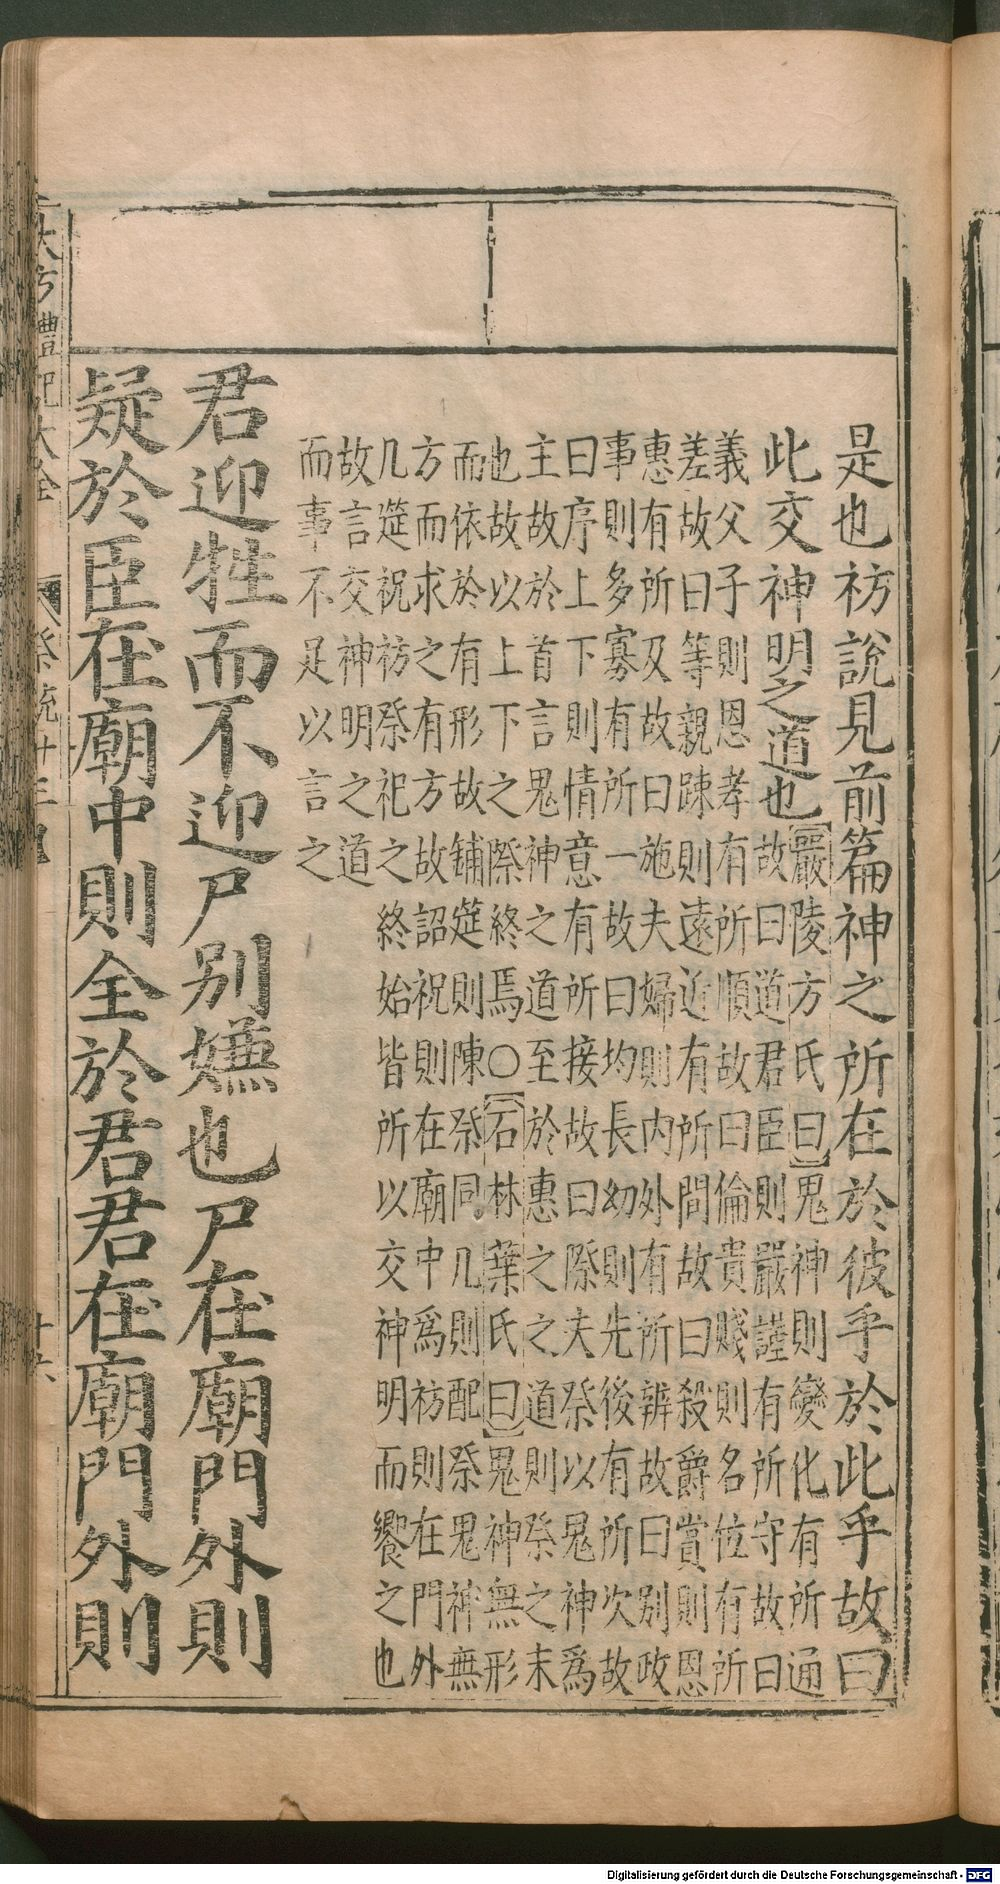 是也祊說見前篇神之所在於彼乎於此乎故曰
此交神明之道也【嚴陵方氏曰】鬼神則變化有所通
故曰道君臣則嚴謹有所守故曰
義父子則恩孝有所順故曰倫貴賤則名位有所
差故曰等親踈則遠近有所間故曰殺爵賞則恩
惠有所及故曰施夫婦則內外有所辨故曰別政
事則多寡有所一故曰均長幼則先後有所次故
曰序上下則情意有所接故曰際夫祭以鬼神爲
主故於首言鬼神之道至於惠之之道則祭之末
也故以上下之際終焉○【石林葉氏曰】鬼神無形
而依於有形故鋪筵則陳祭同几則配祭鬼神無
方而求之有方故詔祝則在廟中爲祊則在門外
几筵祝祊祭祀之終始皆所以交神明而饗之也
故言交神明之道
而事不足以言之
君迎牲而不迎尸別嫌也尸在廟門外則
疑於臣在廟中則全於君君在廟門外則
大方禮記大全 祭統十三 十六
Digitalisierung gefördert durch die Deutsche Forschungsgemeinschaft - DFG